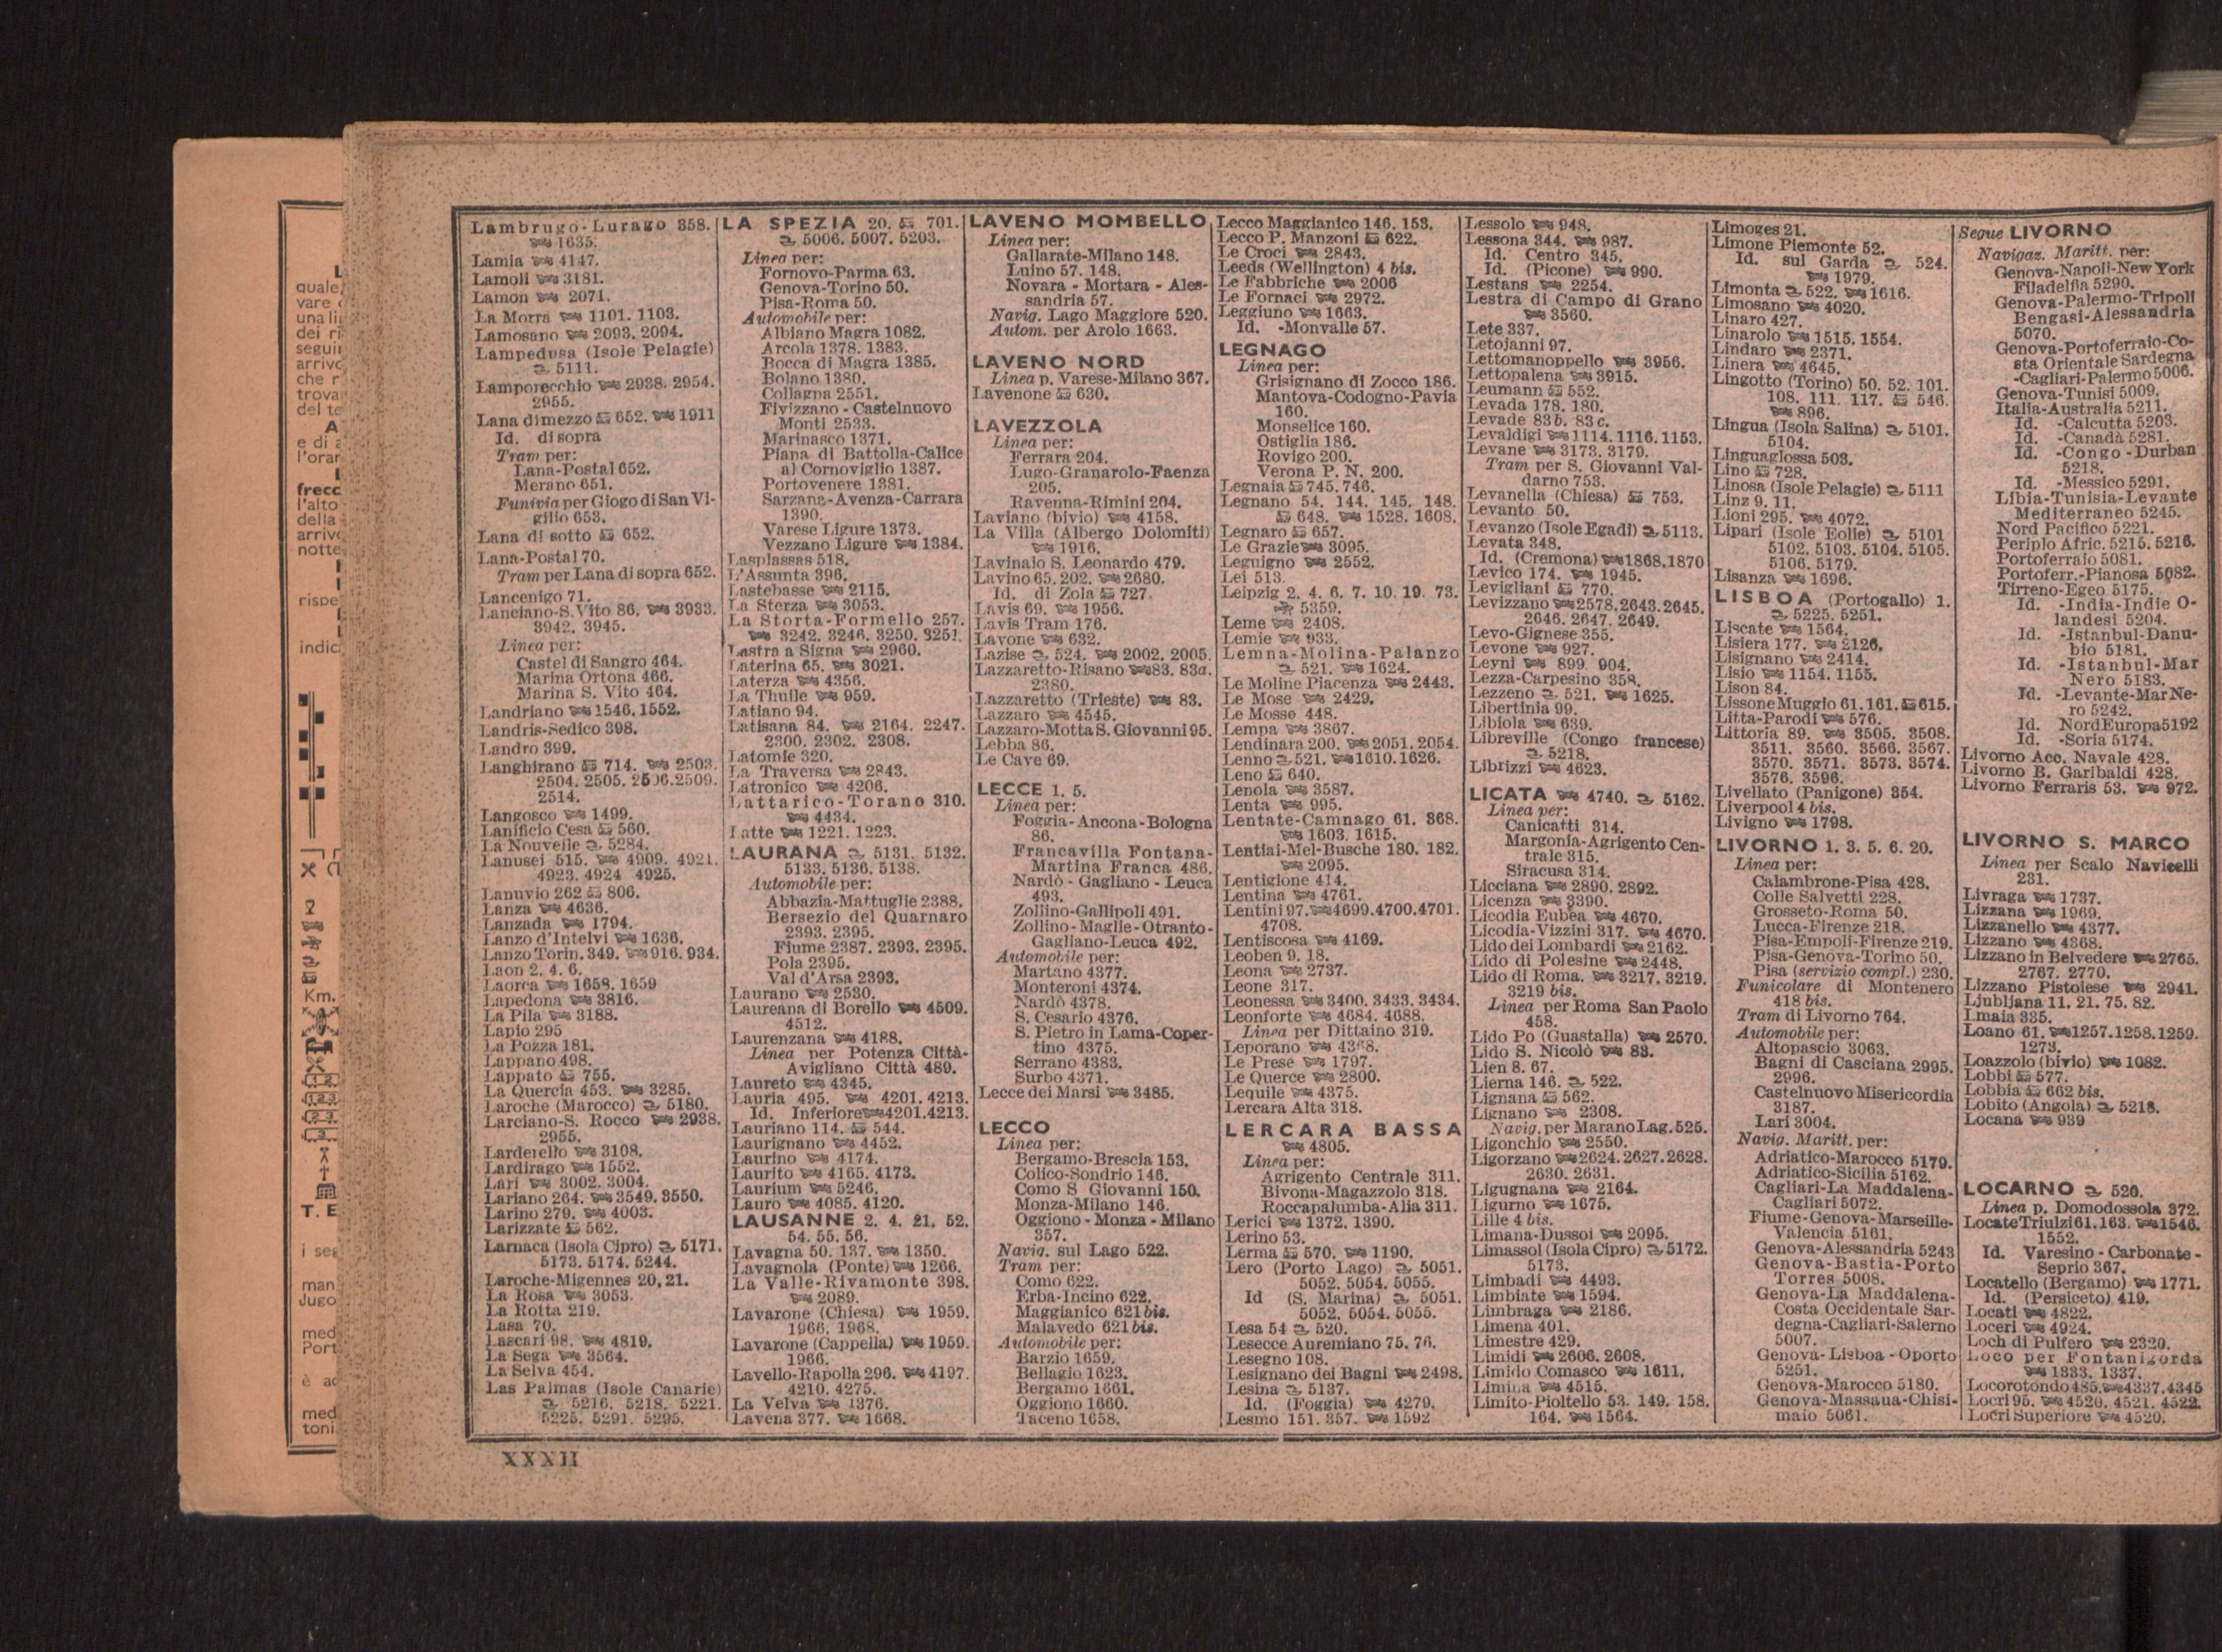 Lambrugo-Lurago 358.
1635.
Lamia 4147.
Lamoli 3181.
Lamon 2071.
La Morra 1101. 1103.
Lamosano 2093. 2094.
Lampedusa (Isole Pelagie)
5111.
Lamporecchio 2938. 2954.
2955.
Lana di mezzo 652. 1911
Id. di sopra
Tram per:
Lana-Postal 652.
Merano 651.
Funivia per Giogo di San Vi-
gilio 653.
Lana di sotto 652.
Lana-Postal 70.
Tram per Lana di sopra 652.
Lancenigo 71.
Lanciano-S. Vito 86. 3933.
3942. 3945.
Linea per:
Castel di Sangro 464.
Marina Ortona 466.
Marina S. Vito 464.
Landriano 1546. 1552.
Landris-Sedico 398.
Landro 399.
Langhirano 714. 2503.
2504. 2505. 2506. 2509.
2514.
Langosco 1499.
Lanificio Cesa 560.
La Nouvelle 5284.
Lanusei 515. 4909. 4921.
4923. 4924 4925.
Lanuvio 262 806.
Lanza 4636.
Lanzada 1794.
Lanzo d'Intelvi 1636.
Lanzo Torin. 349. 916. 934.
Laon 2. 4. 6.
Laorca 1658. 1659
Lapedona 3816.
La Pila 3188.
Lapio 295
La Pozza 181.
Lappano 498.
Lappato 755.
La Quercia 453. 3285.
Laroche (Marocco) 5180.
Larciano-S. Rocco 2938.
2955.
Larderello 3108.
Lardirago 1552.
Lari 3002. 3004.
Lariano 264. 3549. 3550.
Larino 279. 4003.
Larizzate 562.
Larnaca (Isola Cipro) 5171.
5173. 5174. 5244.
Laroche-Migennes 20, 21.
La Rosa 3053.
La Rotta 219.
Lasa 70.
Lascari 98. 4819.
La Sega 3564.
La Selva 454.
Las Palmas (Isole Canarie)
5216. 5218. 5221.
5225. 5291. 5295.
LA SPEZIA 20. 701.
5006. 5007. 5203.
Linea per:
Fornovo-Parma 63.
Genova-Torino 50.
Pisa-Roma 50.
Automobile per:
Albiano Magra 1082.
Arcola 1378. 1383.
Bocca di Magra 1385.
Bolano 1380.
Collagna 2551.
Fivizzano - Castelnuovo
Monti 2533.
Marinasco 1371.
Piana di Battolla-Calice
al Cornoviglio 1387.
Portovenere 1381.
Sarzana-Avenza-Carrara
1390.
Varese Ligure 1373.
Vezzano Ligure 1384.
Lasplassas 518.
L'Assunta 396.
Lastebasse 2115.
La Sterza 3053.
La Storta-Formello 257.
3242. 3246. 3250. 3251.
Lastra a Signa 2960.
Laterina 65. 3021.
Laterza 4356.
La Thuile 959.
Latiano 94.
Latisana 84. 2164. 2247.
2300. 2302. 2308.
Latomie 320.
La Traversa 2843.
Latronico 4206.
Lattarico-Torano 310.
4434.
Latte 1221. 1223.
LAURANA 5131. 5132.
5133. 5136. 5138.
Automobile per:
Abbazia-Mattuglie 2388.
Bersezio del Quarnaro
2393. 2395.
Fiume 2387. 2393. 2395.
Pola 2395.
Val d'Arsa 2393.
Laurano 2530.
Laureana di Borello 4509.
4512.
Laurenzana 4188.
Linea per Potenza Città-
Avigliano Città 489.
Laureto 4345.
Lauria 495. 4201. 4213.
Id. Inferiore 4201. 4213.
Lauriano 114. 544.
Laurignano 4452.
Laurino 4174.
Laurito 4165. 4173.
Laurium 5246.
Lauro 4085. 4120.
LAUSANNE 2. 4. 21. 52.
54. 55. 56.
Lavagna 50. 137. 1350.
Lavagnola (Ponte) 1266.
La Valle-Rivamonte 398.
2089.
Lavarone (Chiesa) 1959.
1966. 1968.
Lavarone (Cappella) 1959.
1966.
Lavello-Rapolla 296. 4197.
4210. 4275.
La Velva 1376.
Lavena 377. 1668.
LAVENO MOMBELLO
Linea per:
Gallarate-Milano 148.
Luino 57. 148.
Novara - Mortara - Ales-
sandria 57.
Navig. Lago Maggiore 520.
Autom. per Arolo 1663.
LAVENO NORD
Linea p. Varese-Milano 367.
Lavenone 630.
LAVEZZOLA
Linea per:
Ferrara 204.
Lugo-Granarolo-Faenza
205.
Ravenna-Rimini 204.
Laviano (bivio) 4158.
La Villa (Albergo Dolomiti)
1916.
Lavinaio S. Leonardo 479.
Lavino 65. 202. 2680.
Id. di Zola 727.
Lavis 69. 1956.
Lavis Tram 176.
Lavone 632.
Lazise 524. 2002. 2005.
Lazzaretto-Risano 83. 83a.
2380.
Lazzaretto (Trieste) 83.
Lazzaro 4545.
Lazzaro-Motta S. Giovanni 95.
Lebba 86.
Le Cave 69.
LECCE 1. 5.
Linea per:
Foggia-Ancona-Bologna
86.
Francavilla Fontana-
Martina Franca 486.
Nardò - Gagliano - Leuca
493.
Zollino-Gallipoli 491.
Zollino-Maglie-Otranto-
Gagliano-Leuca 492.
Automobile per:
Martano 4377.
Monteroni 4374.
Nardò 4378.
S. Cesario 4376.
S. Pietro in Lama-Coper-
tino 4375.
Serrano 4383.
Surbo 4371.
Lecce dei Marsi 3485.
LECCO
Linea per:
Bergamo-Brescia 153.
Colico-Sondrio 146.
Como S Giovanni 150.
Monza-Milano 146.
Oggiono - Monza - Milano
357.
Navig. sul Lago 522.
Tram per:
Como 622.
Erba-Incino 622.
Maggianico 621bis.
Malavedo 621bis.
Automobile per:
Barzio 1659.
Bellagio 1623.
Bergamo 1661.
Oggiono 1660.
Taceno 1658.
Lecco Maggianico 146. 153.
Lecco P. Manzoni 622.
Le Croci 2843.
Leeds (Wellington) 4 bis.
Le Fabbriche 2006
Le Fornaci 2972.
Leggiuno 1663.
Id. -Monvalle 57.
LEGNAGO
Linea per:
Grisignano di Zocco 186.
Mantova-Codogno-Pavia
160.
Monselice 160.
Ostiglia 186.
Rovigo 200.
Verona P. N. 200.
Legnaia 745. 746.
Legnano 54. 144. 145. 148.
648. 1528. 1608.
Legnaro 657.
Le Grazie 3095.
Leguigno 2552.
Lei 513.
Leipzig 2. 4. 6. 7. 10. 19. 73.
5359.
Leme 2408.
Lemie 933.
Lemna-Molina-Palanzo
521. 1624.
Le Moline Piacenza 2443.
Le Mose 2429.
Le Mosse 448.
Lempa 3867.
Lendinara 200. 2051. 2054.
Lenno 521. 1610. 1626.
Leno 640.
Lenola 3587.
Lenta 995.
Lentate-Camnago 61. 368.
1603. 1615.
Lentiai-Mel-Busche 180. 182.
2095.
Lentigione 414.
Lentina 4761.
Lentini 97. 4699. 4700. 4701.
4708.
Lentiscosa 4169.
Leoben 9. 18.
Leona 2737.
Leone 317.
Leonessa 3400. 3433. 3434.
Leonforte 4684. 4688.
Linea per Dittaino 319.
Leporano 4368.
Le Prese 1797.
Le Querce 2800.
Lequile 4375.
Lercara Alta 318.
LERCARA BASSA
4805.
Linea per:
Agrigento Centrale 311.
Bivona-Magazzolo 318.
Roccapalumba-Alia 311.
Lerici 1372. 1390.
Lerino 53.
Lerma 570. 1190.
Lero (Porto Lago) 5051.
5052. 5054. 5055.
Id (S. Marina) 5051.
5052. 5054. 5055.
Lesa 54 520.
Lesecce Auremiano 75. 76.
Lesegno 108.
Lesignano dei Bagni 2498.
Lesina 5137.
Id. (Foggia) 4279.
Lesmo 151. 357. 1592
Lessolo 948.
Lessona 344. 987.
Id. Centro 345.
Id. (Picone) 990.
Lestans 2254.
Lestra di Campo di Grano
3560.
Lete 337.
Letojanni 97.
Lettomanoppello 3956.
Lettopalena 3915.
Leumann 552.
Levada 178. 180.
Levade 83b. 83c.
Levaldigi 1114. 1116. 1153.
Levane 3173. 3179.
Tram per S. Giovanni Val-
darno 753.
Levanella (Chiesa) 753.
Levanto 50.
Levanzo (Isole Egadi) 5113.
Levata 348.
Id. (Cremona) 1868. 1870
Levico 174. 1945.
Levigliani 770.
Levizzano 2578. 2643. 2645.
2646. 2647. 2649.
Levo-Gignese 355.
Levone 927.
Leyni 899. 904.
Lezza-Carpesino 358.
Lezzeno 521. 1625.
Libertinia 99.
Libiola 639.
Libreville (Congo francese)
5218.
Librizzi 4623.
LICATA 4740. 5162.
Linea per:
Canicattì 314.
Margonia-Agrigento Cen-
trale 315.
Siracusa 314.
Licciana 2890. 2892.
Licenza 3390.
Licodia Eubea 4670.
Licodia-Vizzini 317. 4670.
Lido dei Lombardi 2162.
Lido di Polesine 2448.
Lido di Roma. 3217. 3219.
3219 bis.
Linea per Roma San Paolo
458.
Lido Po (Guastalla) 2570.
Lido S. Nicolò 83.
Lien 8. 67.
Lierna 146. 522.
Lignana 562.
Lignano 2308.
Navig. per Marano Lag. 525.
Ligonchio 2550.
Ligorzano 2624. 2627. 2628.
2630. 2631.
Ligugnana 2164.
Ligurno 1675.
Lille 4 bis.
Limana-Dussoi 2095.
Limassol (Isola Cipro) 5172.
5173.
Limbadi 4493.
Limbiate 1594.
Limbraga 2186.
Limena 401.
Limestre 429.
Limidi 2606. 2608.
Limido Comasco 1611.
Limina 4515.
Limito-Pioltello 53. 149. 158.
164. 1564.
Limoges 21.
Limone Piemonte 52.
Id. sul Garda 524.
1979.
Limonta 522. 1616.
Limosano 4020.
Linaro 427.
Linarolo 1515. 1554.
Lindaro 2371.
Linera 4645.
Lingotto (Torino) 50. 52. 101.
108. 111. 117. 546.
896.
Lingua (Isola Salina) 5101.
5104.
Linguaglossa 503.
Lino 728.
Linosa (Isole Pelagie) 5111
Linz 9. 11.
Lioni 295. 4072.
Lipari (Isole Eolie) 5101
5102. 5103. 5104. 5105.
5106. 5179.
Lisanza 1696.
LISBOA (Portogallo) 1.
5225. 5251.
Liscate 1564.
Lisiera 177. 2126.
Lisignano 2414.
Lisio 1154. 1155.
Lison 84.
Lissone Muggio 61. 161. 615.
Litta-Parodi 576.
Littoria 89. 3505. 3508.
3511. 3560. 3566. 3567.
3570. 3571. 3573. 3574.
3576. 3596.
Livellato (Panigone) 354.
Liverpool 4 bis.
Livigno 1798.
LIVORNO 1. 3. 5. 6. 20.
Linea per:
Calambrone-Pisa 428.
Colle Salvetti 228.
Grosseto-Roma 50.
Lucca-Firenze 218.
Pisa-Empoli-Firenze 219.
Pisa-Genova-Torino 50.
Pisa (servizio compl.) 230.
Funicolare di Montenero
418 bis.
Tram di Livorno 764.
Automobile per:
Altopascio 3063.
Bagni di Casciana 2995.
2996.
Castelnuovo Misericordia
3187.
Lari 3004.
Navig. Maritt. per:
Adriatico-Marocco 5179.
Adriatico-Sicilia 5162.
Cagliari-La Maddalena-
Cagliari 5072.
Fiume-Genova-Marseille-
Valencia 5161.
Genova-Alessandria 5243
Genova-Bastia-Porto
Torres 5008.
Genova-La Maddalena-
Costa Occidentale Sar-
degna-Cagliari-Salerno
5007.
Genova-Lisboa-Oporto
5251.
Genova-Marocco 5180.
Genova-Massaua-Chisi-
maio 5061.
Segue LIVORNO
Navigaz. Maritt. per:
Genova-Napoli-New York
Filadelfia 5290.
Genova-Palermo-Tripoli
Bengasi-Alessandria
5070.
Genova-Portoferraio-Co-
sta Orientale Sardegna
-Cagliari-Palermo 5006.
Genova-Tunisi 5009.
Italia-Australia 5211.
Id. -Calcutta 5203.
Id. -Canadà 5281.
Id. -Congo - Durban
5218.
Id. -Messico 5291.
Libia-Tunisia-Levante
Mediterraneo 5245.
Nord Pacifico 5221.
Periplo Afric. 5215. 5216.
Portoferraio 5081.
Portoferr.-Pianosa 5082.
Tirreno-Egeo 5175.
Id. -India-Indie O-
landesi 5204.
Id. -Istanbul-Danu-
bio 5181.
Id. -Istanbul-Mar
Nero 5183.
Id. -Levante-Mar Ne-
ro 5242.
Id. Nord Europa 5192
Id. -Soria 5174.
Livorno Acc. Navale 428.
Livorno B. Garibaldi 428.
Livorno Ferraris 53. 972.
LIVORNO S. MARCO
Linea per Scalo Navicelli
231.
Livraga 1737.
Lizzana 1969.
Lizzanello 4377.
Lizzano 4368.
Lizzano in Belvedere 2765.
2767. 2770.
Lizzano Pistoiese 2941.
Ljubljana 11. 21. 75. 82.
Lmaia 335.
Loano 61. 1257. 1258. 1259.
1273.
Loazzolo (bivio) 1082.
Lobbi 577.
Lobbia 662 bis.
Lobito (Angola) 5218.
Locana 939
LOCARNO 520.
Linea p. Domodossola 372.
Locate Triulzi 61. 163. 1546.
1552.
Id. Varesino - Carbonate -
Seprio 367.
Locatello (Bergamo) 1771.
Id. (Persiceto) 419.
Locati 4822.
Loceri 4924.
Loch di Pulfero 2320.
Loco per Fontanigorda
1333. 1337.
Locorotondo 485. 4337. 4345
Locri 95. 4520. 4521. 4522.
Locri Superiore 4520.
XXXII